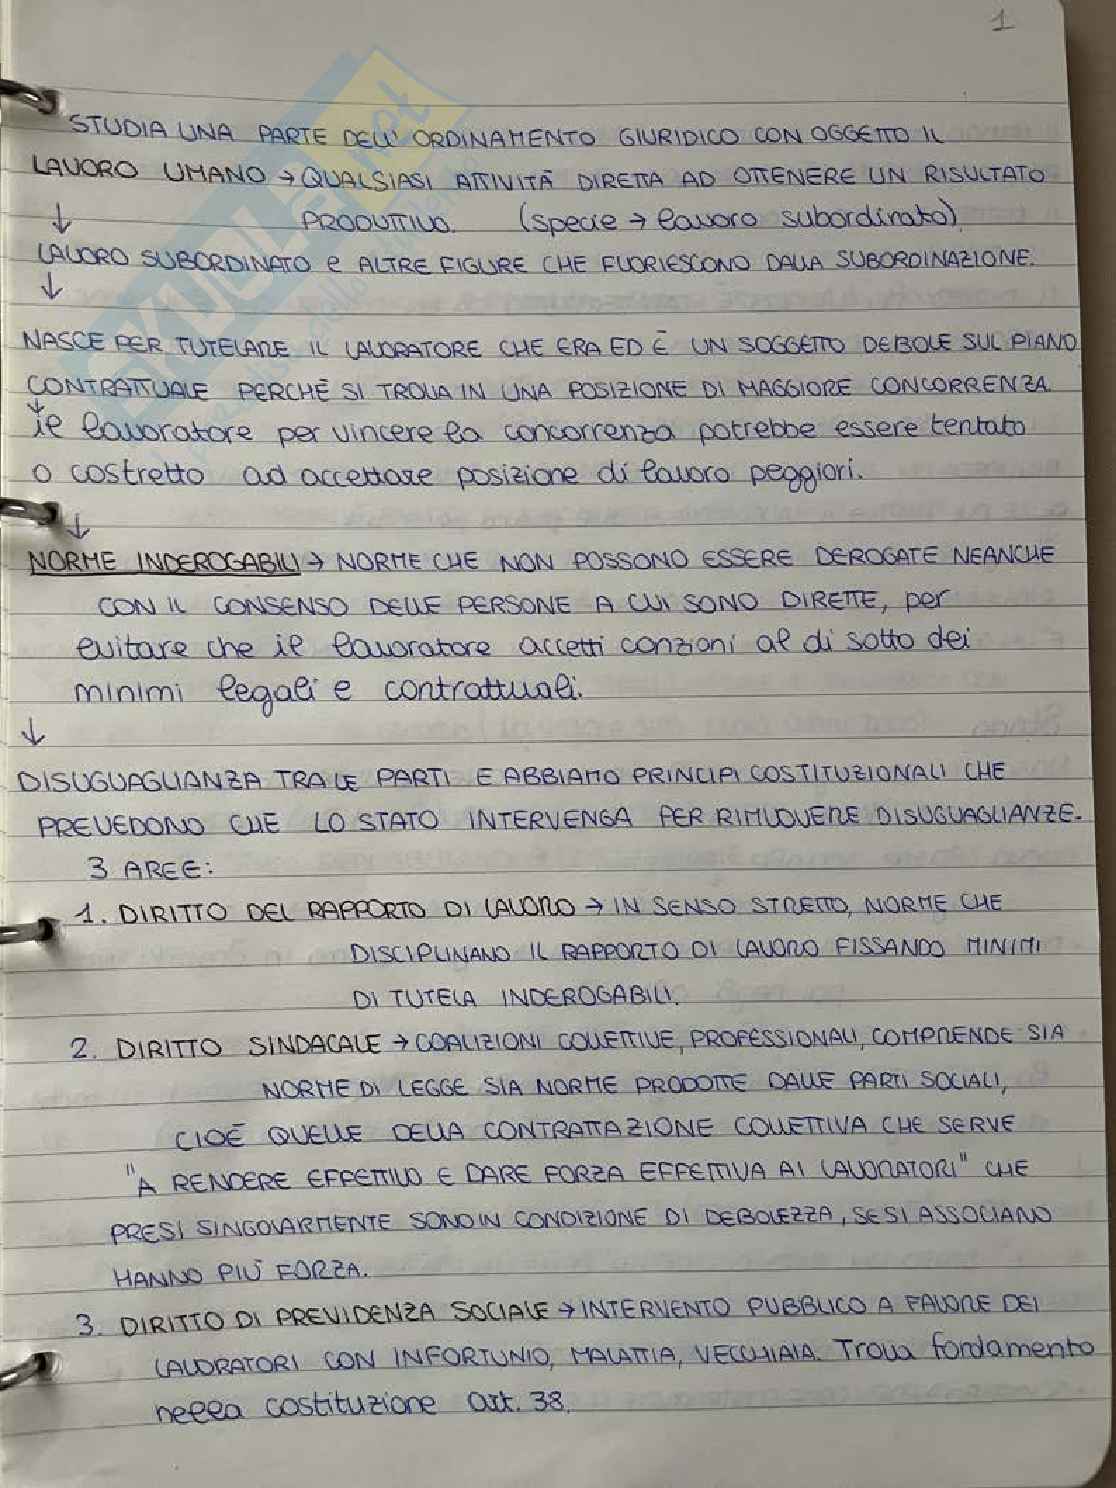 1
STUDIA UNA PARTE DELL'ORDINAMENTO GIURIDICO CON OGGETTO IL
LAVORO UMANO → QUALSIASI ATTIVITÀ DIRETTA AD OTTENERE UN RISULTATO
↓ PRODUTTIVO. (specie → lavoro subordinato).
LAVORO SUBORDINATO e ALTRE FIGURE CHE FUORIESCONO DALLA SUBORDINAZIONE.
↓
NASCE PER TUTELARE IL LAVORATORE CHE ERA ED È UN SOGGETTO DEBOLE SUL PIANO
CONTRATTUALE PERCHÈ SI TROVA IN UNA POSIZIONE DI MAGGIORE CONCORRENZA.
↓
il lavoratore per vincere la concorrenza potrebbe essere tentato
o costretto ad accettare posizione di lavoro peggiori.
↓
NORME INDEROGABILI → NORME CHE NON POSSONO ESSERE DEROGATE NEANCHE
CON IL CONSENSO DELLE PERSONE A CUI SONO DIRETTE, per
evitare che il lavoratore accetti conzioni al di sotto dei
minimi legali e contrattuali.
↓
DISUGUAGLIANZA TRA LE PARTI E ABBIAMO PRINCIPI COSTITUZIONALI CHE
PREVEDONO CHE LO STATO INTERVENGA PER RIMUOVERE DISUGUAGLIANZE.
3 AREE:
1. DIRITTO DEL RAPPORTO DI LAVORO → IN SENSO STRETTO, NORME CHE
DISCIPLINANO IL RAPPORTO DI LAVORO FISSANDO MINIMI
DI TUTELA INDEROGABILI.
2. DIRITTO SINDACALE → COALIZIONI COLLETTIVE, PROFESSIONALI, COMPRENDE SIA
NORME DI LEGGE SIA NORME PRODOTTE DALLE PARTI SOCIALI,
CIOÈ QUELLE DELLA CONTRATTAZIONE COLLETTIVA CHE SERVE
"A RENDERE EFFETTIVO E DARE FORZA EFFETTIVA AI LAVORATORI" CHE
PRESI SINGOLARMENTE SONO IN CONDIZIONE DI DEBOLEZZA, SE SI ASSOCIANO
HANNO PIÙ FORZA.
3. DIRITTO DI PREVIDENZA SOCIALE → INTERVENTO PUBBLICO A FAVORE DEI
LAVORATORI CON INFORTUNIO, MALATTIA, VECCHIAIA. Trova fondamento
nella costituzione art. 38.